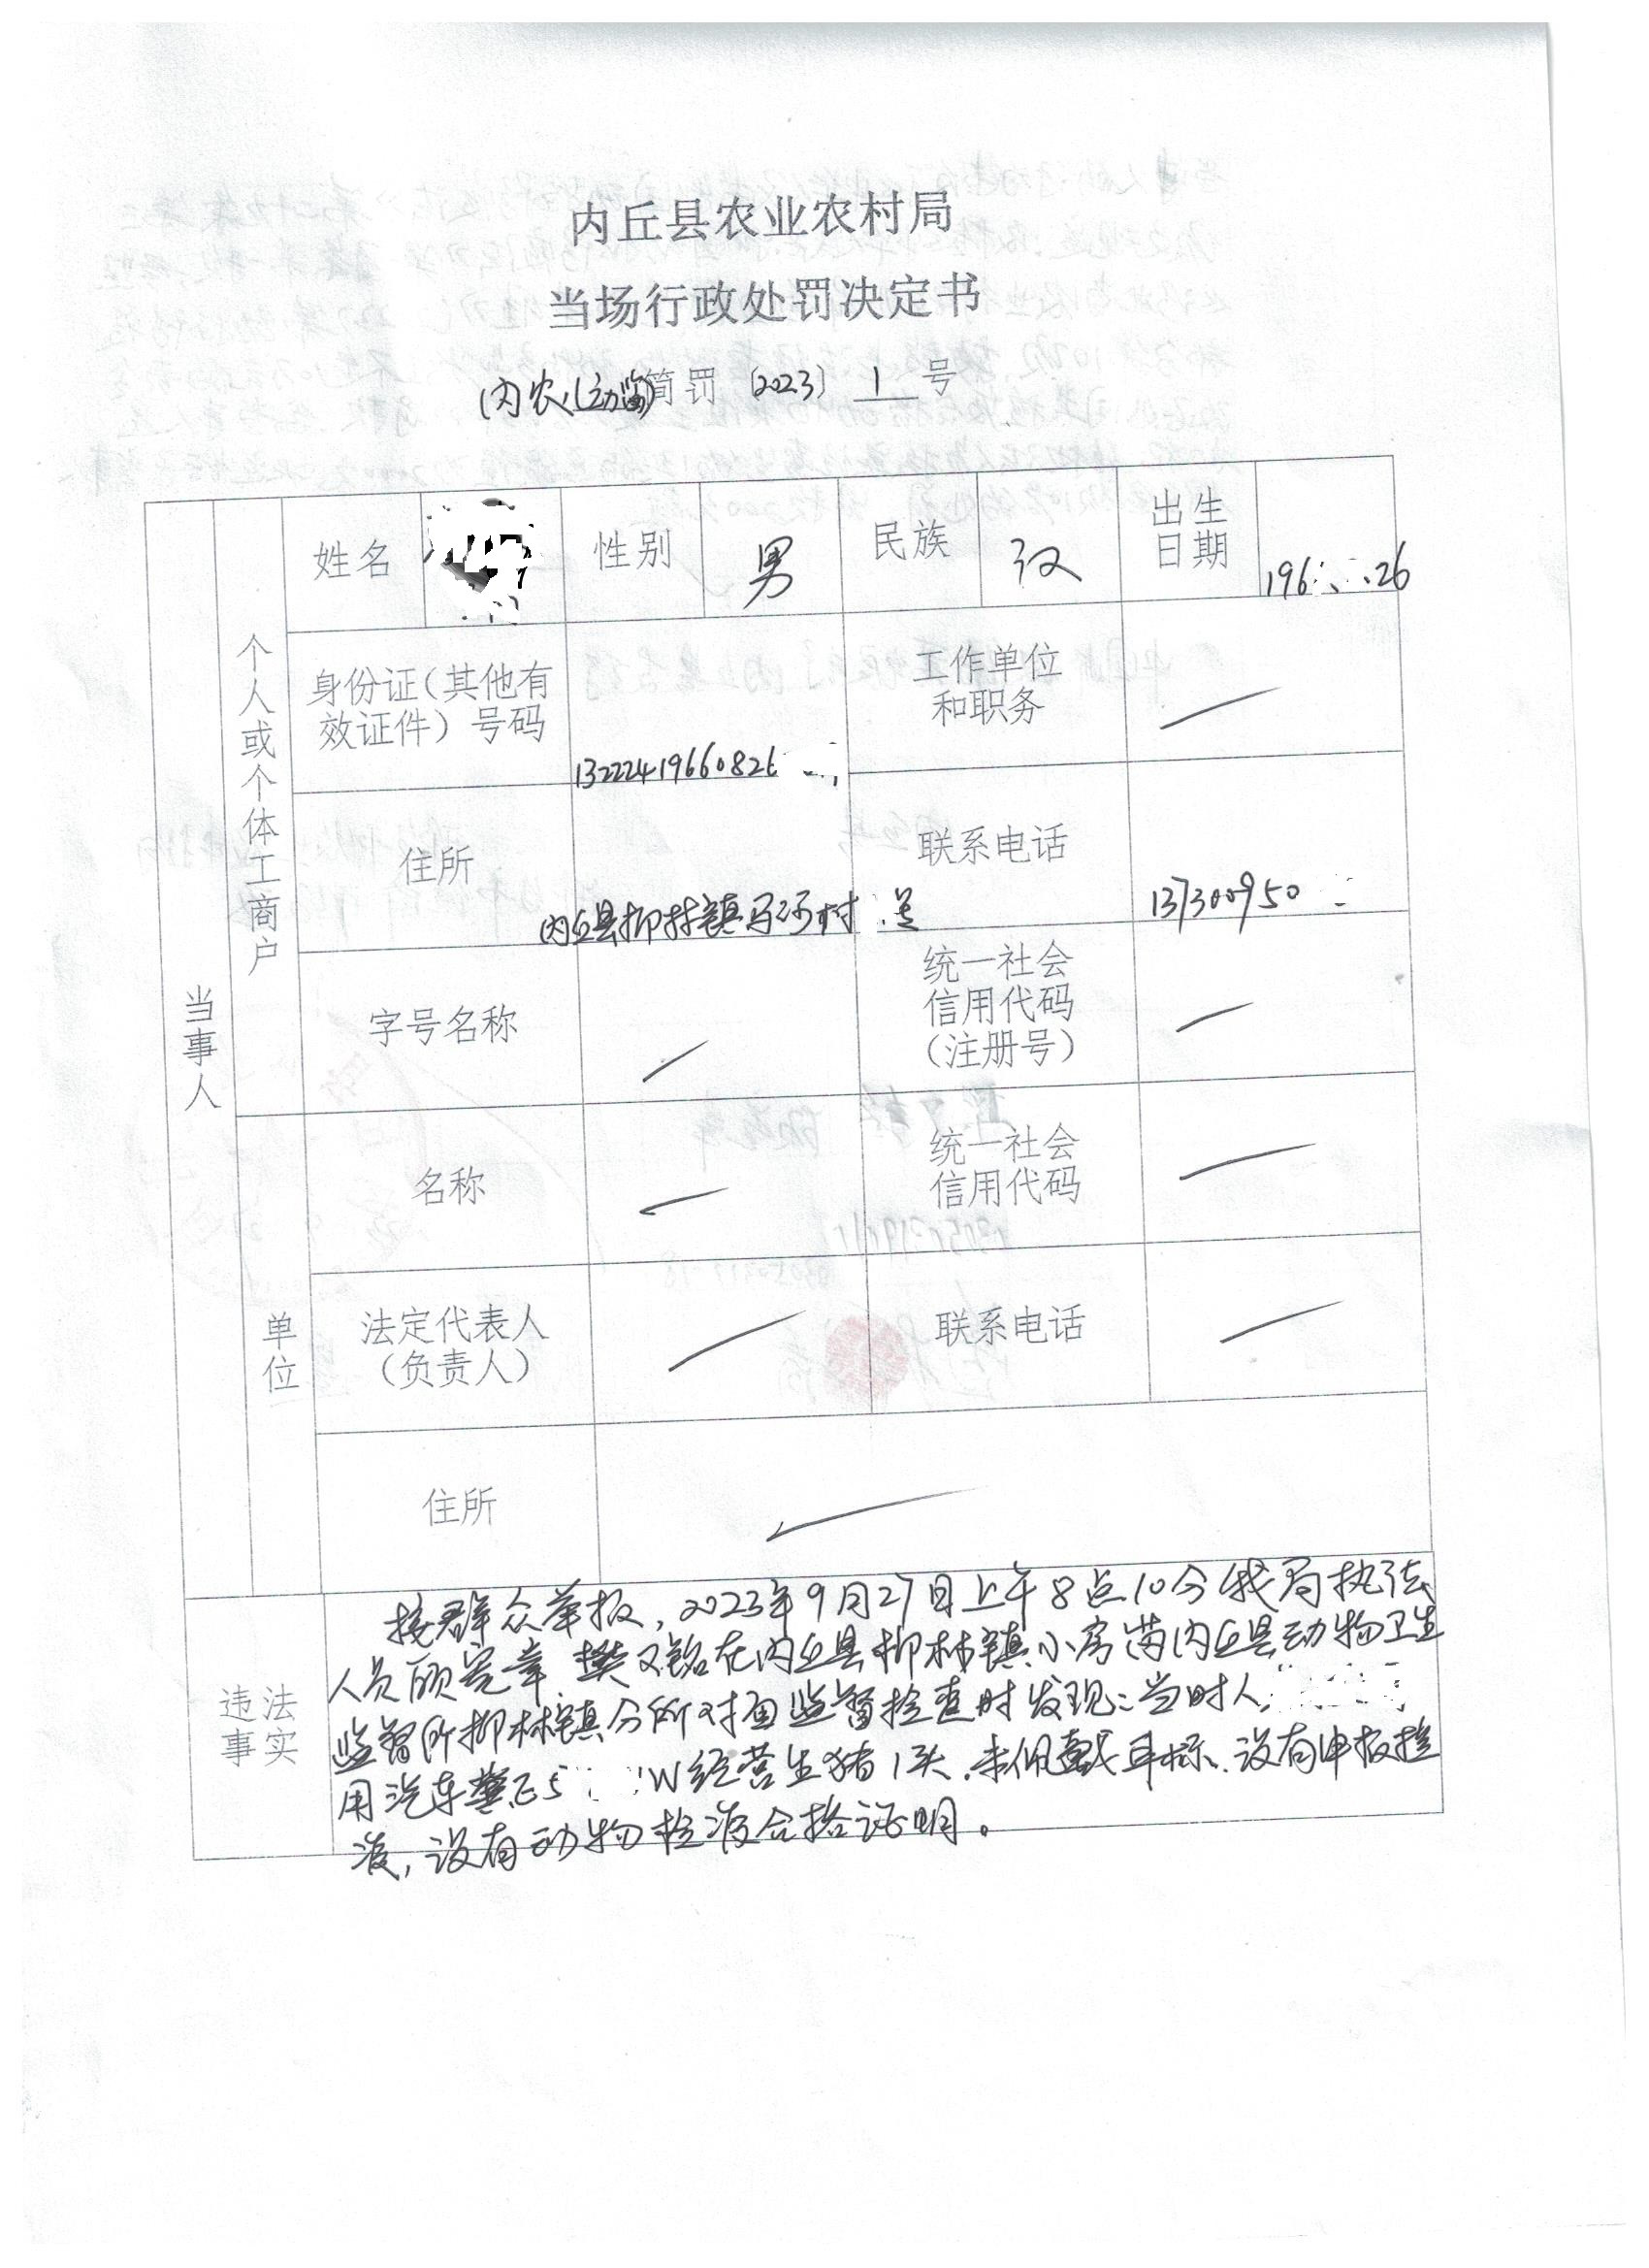 内丘县农业农村局
当场行政处罚决定书
(内农(动监)简罚〔2023〕1号
当事人
个人或个体工商户
姓名
性别 男
民族 汉
出生日期 196 .26
身份证(其他有效证件)号码 13222419660826
工作单位和职务
住所 内丘县柳林镇马河村 号
联系电话 137300950
字号名称
统一社会信用代码(注册号)
单位
名称
统一社会信用代码
法定代表人(负责人)
联系电话
住所
违法事实
接群众举报,2023年9月27日上午8点10分我局执法
人员顾宪章 樊文铭在内丘县柳林镇小房苗内丘县动物卫生
监督所柳林镇分所对面监督检查时发现:当时人
用汽车冀E5 W经营生猪1头.未佩戴耳标、没有申报检
疫,没有动物检疫合格证明。